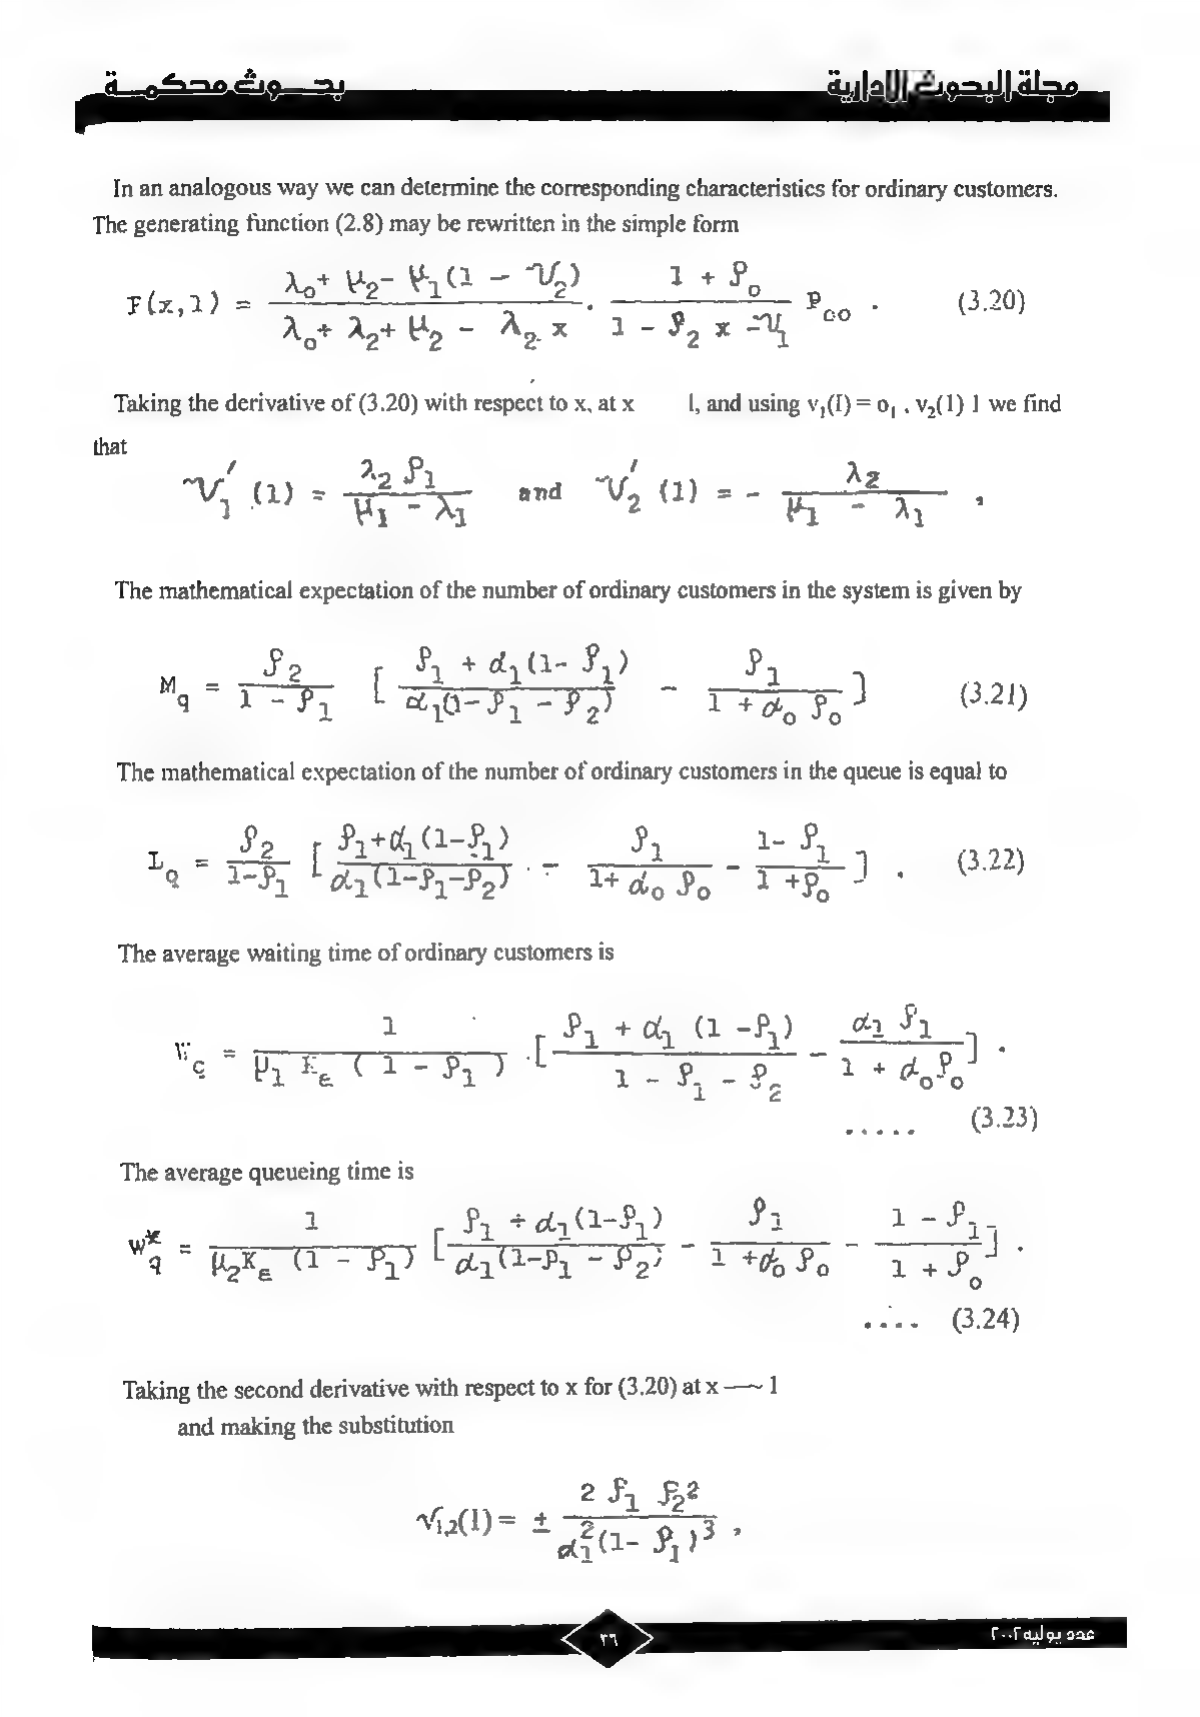 مجلة البحوث الإدارية
بحوث محكمة
In an analogous way we can determine the corresponding characteristics for ordinary customers.
The generating function (2.8) may be rewritten in the simple form
F(x,1) = (λ₀ + μ₂ − μ₁(1 − 𝒱₂)) / (λ₀ + λ₂ + μ₂ − λ₂ x) . (1 + ρ₀) / (1 − ρ₂ x − 𝒱₁) P₀₀ . (3.20)
Taking the derivative of (3.20) with respect to x, at x l, and using v₁(I) = o₁ , v₂(1) 1 we find
that
𝒱₁′ (1) = λ₂ ρ₁ / (μ₁ − λ₁) and 𝒱₂′ (1) = − λ₂ / (μ₁ − λ₁) ,
The mathematical expectation of the number of ordinary customers in the system is given by
M_q = ρ₂ / (1 − ρ₁) [ (ρ₁ + α₁(1− ρ₁)) / (α₁(1− ρ₁ − ρ₂)) − ρ₁ / (1 + α₀ ρ₀) ] (3.21)
The mathematical expectation of the number of ordinary customers in the queue is equal to
L_q = ρ₂ / (1−ρ₁) [ (ρ₁+α₁(1−ρ₁)) / (α₁(1−ρ₁−ρ₂)) − ρ₁ / (1+ α₀ ρ₀) − (1− ρ₁) / (1 +ρ₀) ] . (3.22)
The average waiting time of ordinary customers is
W_q = 1 / (μ₁ K_ε ( 1 − ρ₁ )) . [ (ρ₁ + α₁ (1 −ρ₁)) / (1 − ρ₁ − ρ₂) − α₁ ρ₁ / (1 + α₀ρ₀) ] .
..... (3.23)
The average queueing time is
W*_q = 1 / (μ₂K_ε (1 − ρ₁)) [ (ρ₁ + α₁(1−ρ₁)) / (α₁(1−ρ₁ − ρ₂)) − ρ₁ / (1 +α₀ ρ₀) − (1 − ρ₁) / (1 + ρ₀) ] .
.... (3.24)
Taking the second derivative with respect to x for (3.20) at x —~ 1
and making the substitution
𝒱₁,₂(1) = ± 2 ρ₁ ρ₂² / (α₁²(1− ρ₁)³) ,
٣٦
عدد يوليه ٢٠٠٢